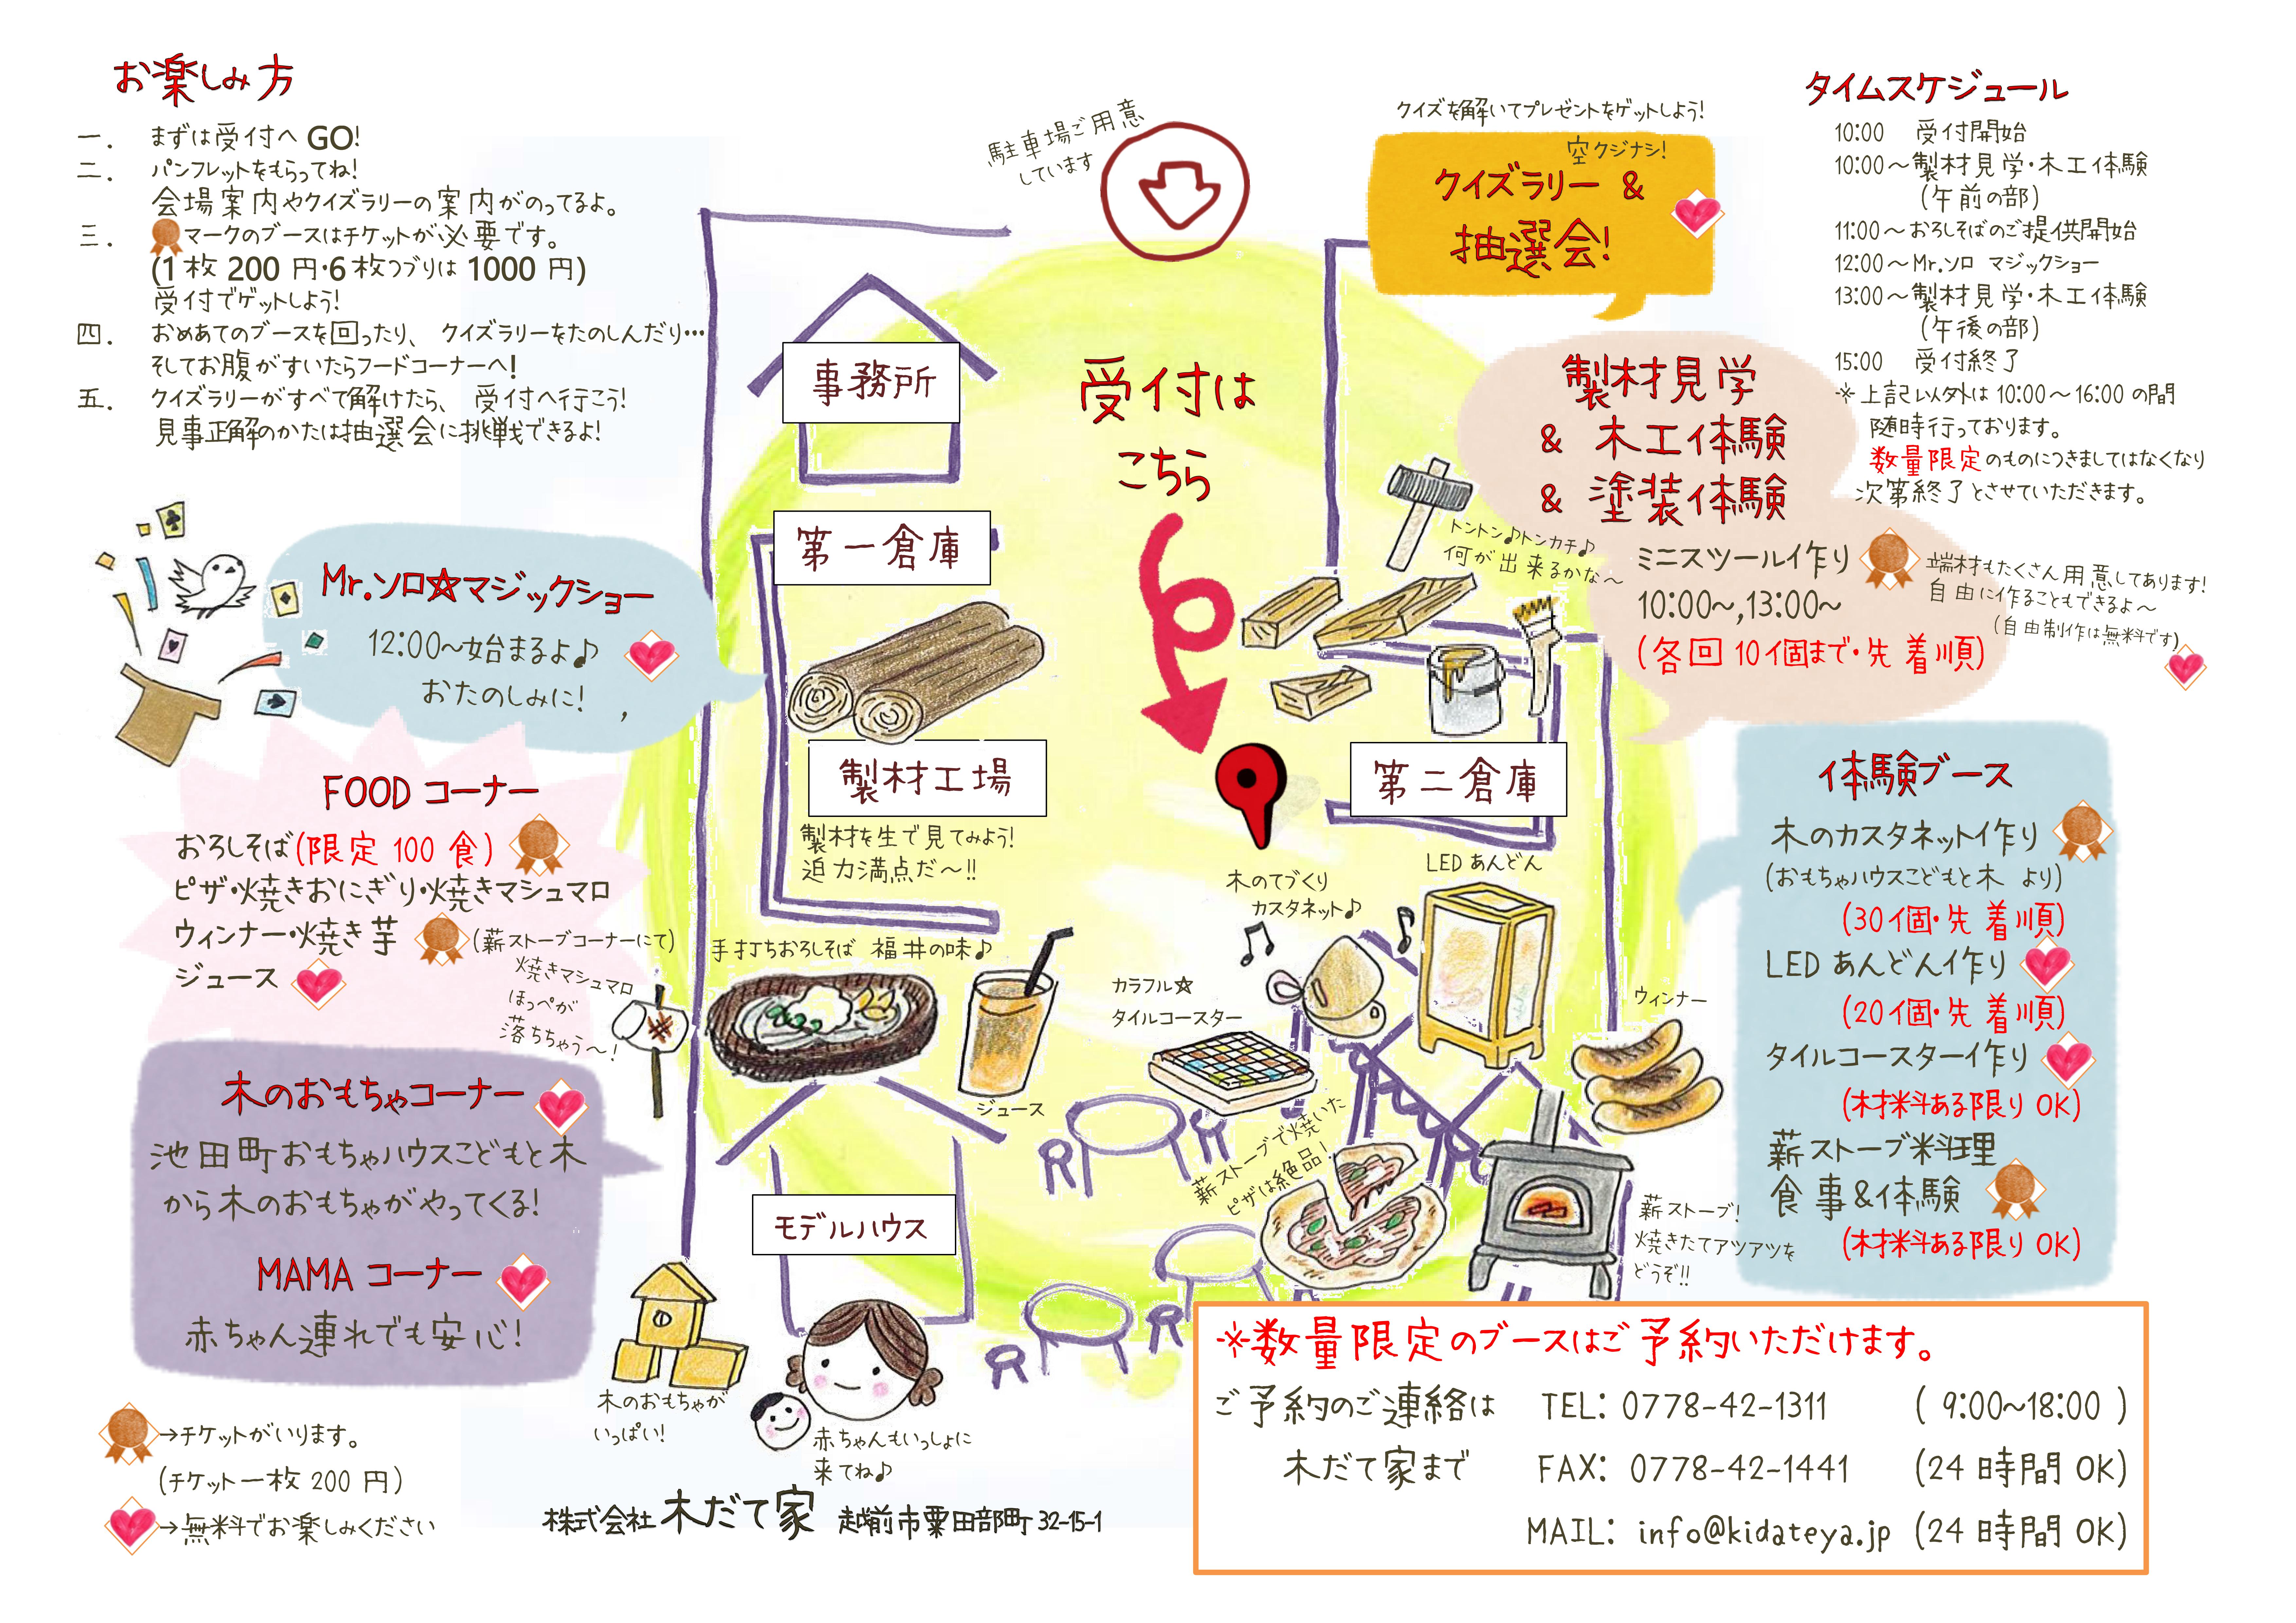 お楽しみ方
一. まずは受付へ GO!
二. パンフレットをもらってね!
会場案内やクイズラリーの案内がのってるよ。
三. マークのブースはチケットが必要です。
(1枚 200 円・6 枚つづりは 1000 円)
受付でゲットしよう!
四. おめあてのブースを回ったり、 クイズラリーをたのしんだり…
そしてお腹がすいたらフードコーナーへ!
五. クイズラリーがすべて解けたら、 受付へ行こう!
見事正解のかたは抽選会に挑戦できるよ!
駐車場ご用意
しています
クイズを解いてプレゼントをゲットしよう!
空クジナシ!
クイズラリー &
抽選会!
タイムスケジュール
10:00 受付開始
10:00～製材見学・木工体験
(午前の部)
11:00～おろしそばのご提供開始
12:00～Mr.ソロ マジックショー
13:00～製材見学・木工体験
(午後の部)
15:00 受付終了
※上記以外は 10:00～16:00 の間
随時行っております。
数量限定のものにつきましてはなくなり
次第終了とさせていただきます。
事務所
受付は
こちら
製材見学
& 木工体験
& 塗装体験
トントン♪トンカチ♪
何が出来るかな～
ミニスツール作り
10:00～,13:00～
(各回 10個まで・先着順)
端材もたくさん用意してあります!
自由に作ることもできるよ～
(自由制作は無料です)
第一倉庫
Mr.ソロ☆マジックショー
12:00～始まるよ♪
おたのしみに! ,
製材工場
製材を生で見てみよう!
迫力満点だ～!!
第二倉庫
FOOD コーナー
おろしそば(限定 100 食)
ピザ・焼きおにぎり・焼きマシュマロ
ウィンナー・焼き芋 (薪ストーブコーナーにて)
ジュース
焼きマシュマロ
ほっぺが
落ちちゃう～!
手打ちおろしそば 福井の味♪
ジュース
木のてづくり
カスタネット♪
LED あんどん
カラフル☆
タイルコースター
ウィンナー
体験ブース
木のカスタネット作り
(おもちゃハウスこどもと木 より)
(30個・先着順)
LED あんどん作り
(20個・先着順)
タイルコースター作り
(材料ある限り OK)
薪ストーブ料理
食事&体験
(材料ある限り OK)
木のおもちゃコーナー
池田町おもちゃハウスこどもと木
から木のおもちゃがやってくる!
MAMA コーナー
赤ちゃん連れでも安心!
モデルハウス
薪ストーブで焼いた
ピザは絶品!
薪ストーブ!
焼きたてアツアツを
どうぞ!!
木のおもちゃが
いっぱい!
赤ちゃんもいっしょに
来てね♪
→チケットがいります。
(チケット一枚 200 円)
→無料でお楽しみください
株式会社 木だて家 越前市粟田部町 32-15-1
※数量限定のブースはご予約いただけます。
ご予約のご連絡は TEL: 0778-42-1311 ( 9:00～18:00 )
木だて家まで FAX: 0778-42-1441 (24 時間 OK)
MAIL: info@kidateya.jp (24 時間 OK)